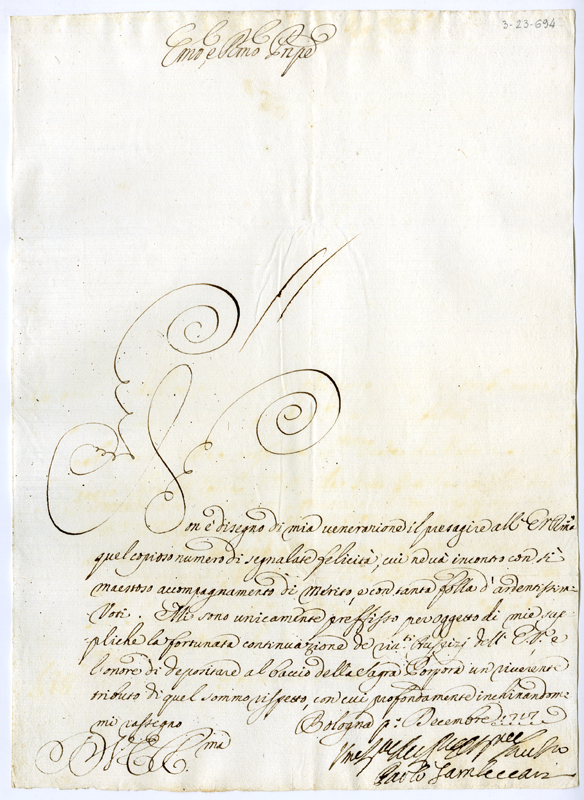 3-23-694
Emo e Rmo Pnpe
Non è disegno di mia venerazione il presagire all' E. V. Rma
quel copioso numero di segnalate felicità, cui ne và incontro con sì
maestoso accompagnamento di Merito, e con tanta folla d' ardentissimi
Voti. Mi sono unicamente prefisso per oggetto di mie sup-
pliche la fortunata continuazione de riv.ti Auspizi dell' E. V. e
l'onore di depositare al baccio della Sagra Porpora un riverente
tributo di quel sommo rispetto, con cui profondamente inchinandomi
mi rassegno
Bologna p.o Decembre 1717
Di V. E. Rma
Paolo Zambeccari